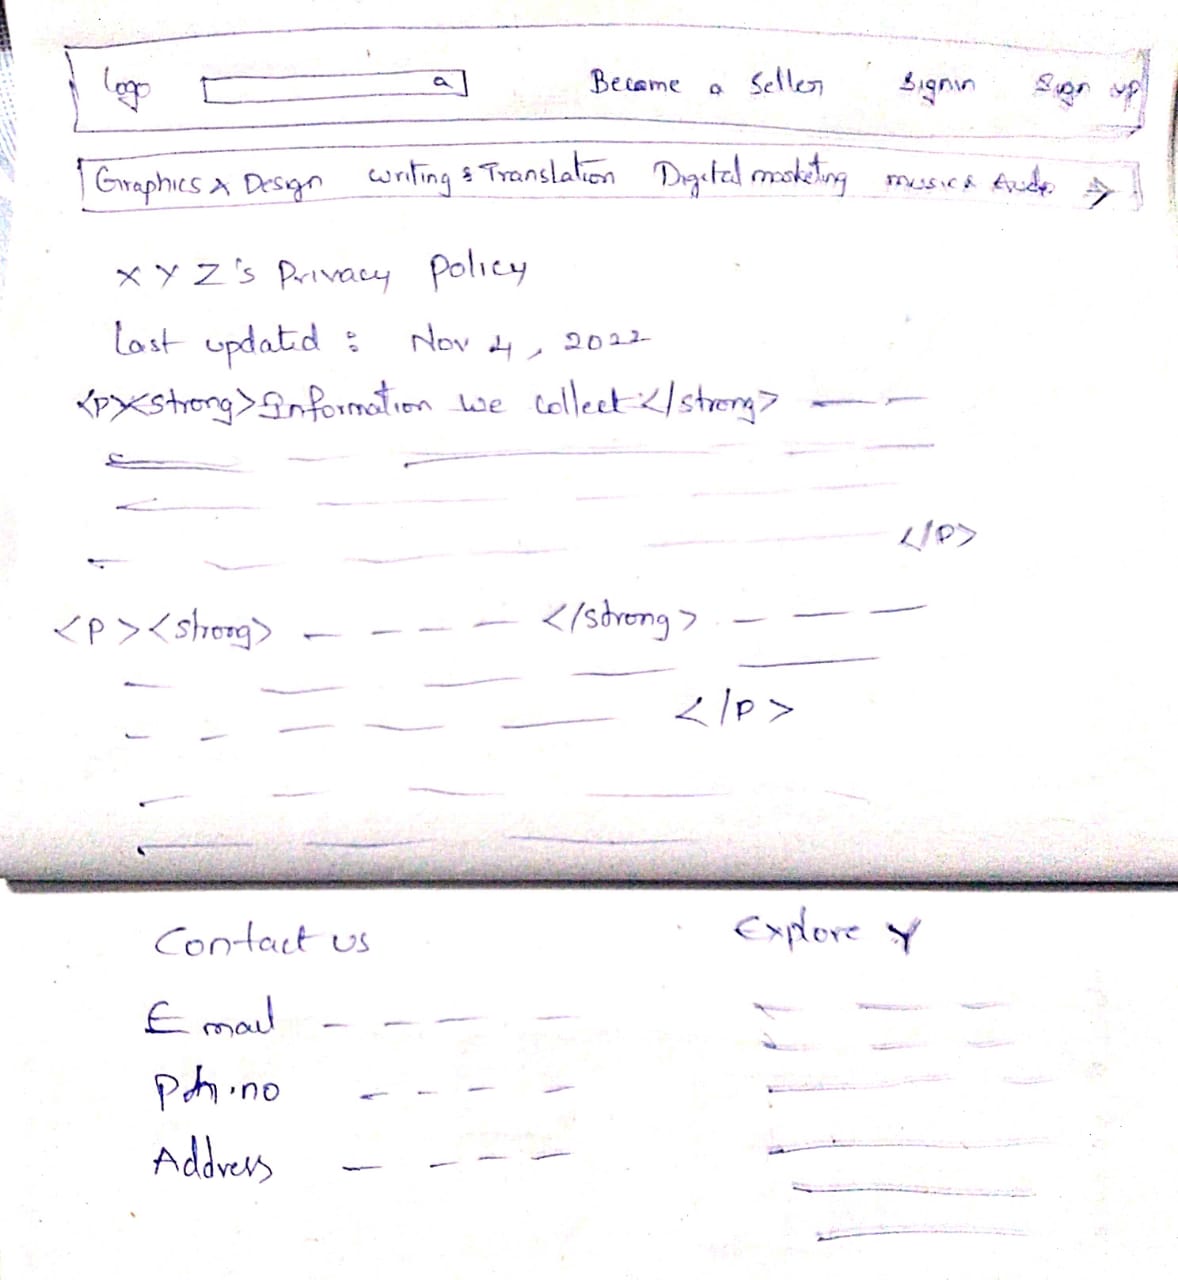 Logo Become a Seller Signin Sign up
Graphics & Design writing & Translation Digital marketing music & Audo →
X Y Z's Privacy policy
Last updated : Nov 4, 2022
<p><strong>Information we collect</strong>
</p>
<p><strong> </strong>
</p>
Contact us Explore Y
Email
Ph.no
Address